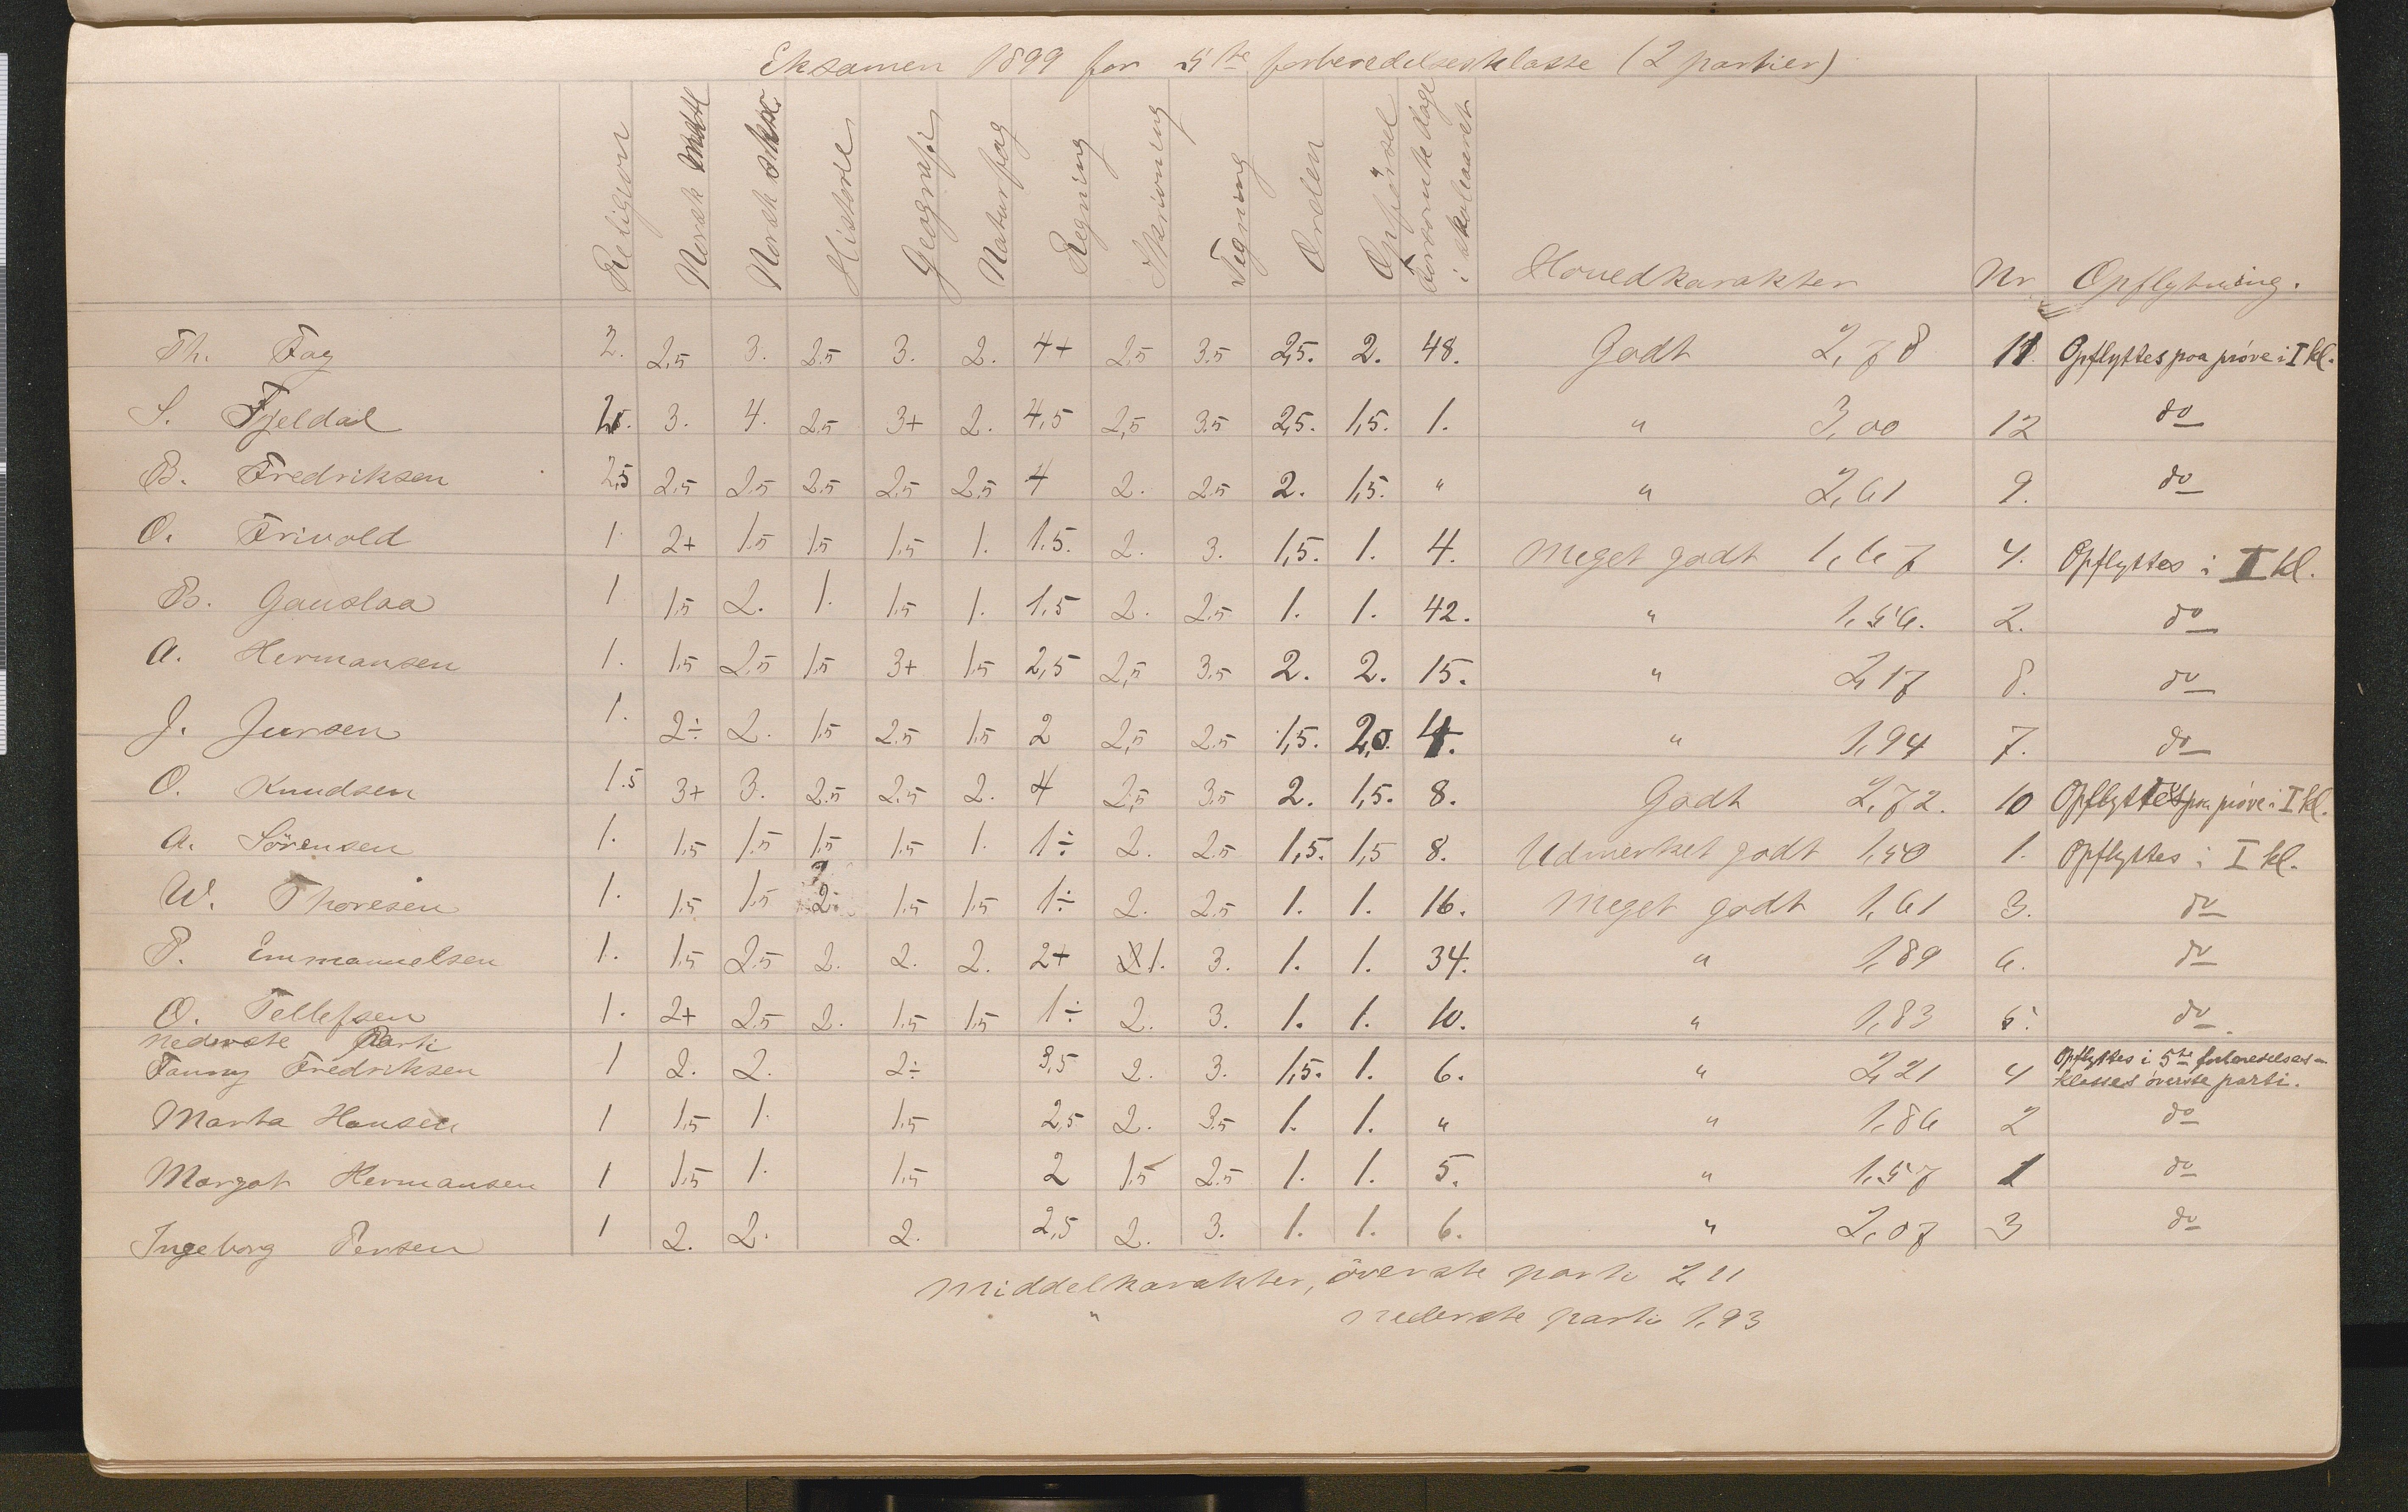 Eksamen 1899 for 5te forberedelsesklasse (2 partier)
Religion Norsk mdtl Norsk skr. Historie Geografi Naturfag Regning Skrivning Tegning Orden Opførsel Forsømte dage i skoleaaret Hovedkarakter Nr Opflytning.
Th. Fag 2. 2,5 3. 2.5 3. 2. 4+ 2,5 3.5 2,5. 2. 48. Godt 2,78 11. Opflyttes paa prøve i I kl.
S. Fjeldal 2,5. 3. 4. 2.5 3+ 2. 4,5 2,5 3.5 2,5. 1,5. 1. " 3,00 12 do
B. Fredriksen 2,5 2.5 2.5 2.5 2.5 2.5 4 2. 2.5 2. 1,5. " " 2,61 9. do
O. Frivold 1 2+ 1.5 1.5 1.5 1. 1.5. 2. 3. 1,5. 1. 4. Meget godt 1,67 4. Opflyttes i I kl.
B. Gauslaa 1 1.5 2. 1. 1.5 1. 1,5 2. 2.5 1. 1. 42. " 1,56. 2. do
A. Hermansen 1. 1.5 2.5 1.5 3+ 1.5 2,5 2,5 3.5 2. 2. 15. " 2,17 8. do
J. Jursen 1. 2÷ 2. 1.5 2.5 1.5 2 2,5 2.5 1,5. 2,0. 4. " 1,94 7. do
O. Knudsen 1.5 3+ 3. 2.5 2.5 2. 4 2,5 3.5 2. 1,5. 8. Godt 2,72. 10 Opflyttes paa prøve i I kl.
A. Sörensen 1. 1.5 1.5 1.5 1.5 1. 1÷ 2. 2.5 1,5. 1,5 8. Udmerket godt 1,50 1. Opflyttes i I kl.
W. Thoresen 1. 1.5 1.5 2. 1.5 1.5 1÷ 2. 2.5 1. 1. 16. Meget godt 1,61 3. do
P. Emmanuelsen 1. 1.5 2.5 2. 2. 2. 2+ 1. 3. 1. 1. 34. " 1,89 6. do
O. Tellefsen 1. 2+ 2.5 2. 1.5 1.5 1÷ 2. 3. 1. 1. 10. " 1,83 5. do.
Nederste Parti
Fanny Fredriksen 1 2. 2. 2÷ 3,5 2. 3. 1,5. 1. 6. " 2,21 4 Opflyttes i 5te forberedelses-
klasses øverste parti.
Marta Hansen 1 1.5 1. 1.5 2,5 2. 3.5 1. 1. " " 1,86 2 do
Margot Hermansen 1 1.5 1. 1.5 2 1.5 2.5 1. 1. 5. " 1,57 1 do
Ingeborg Persen 1 2. 2. 2. 2,5 2. 3. 1. 1. 6. " 2,07 3 do
Middelkarakter, överste parti 2,11
" nederste parti 1,93